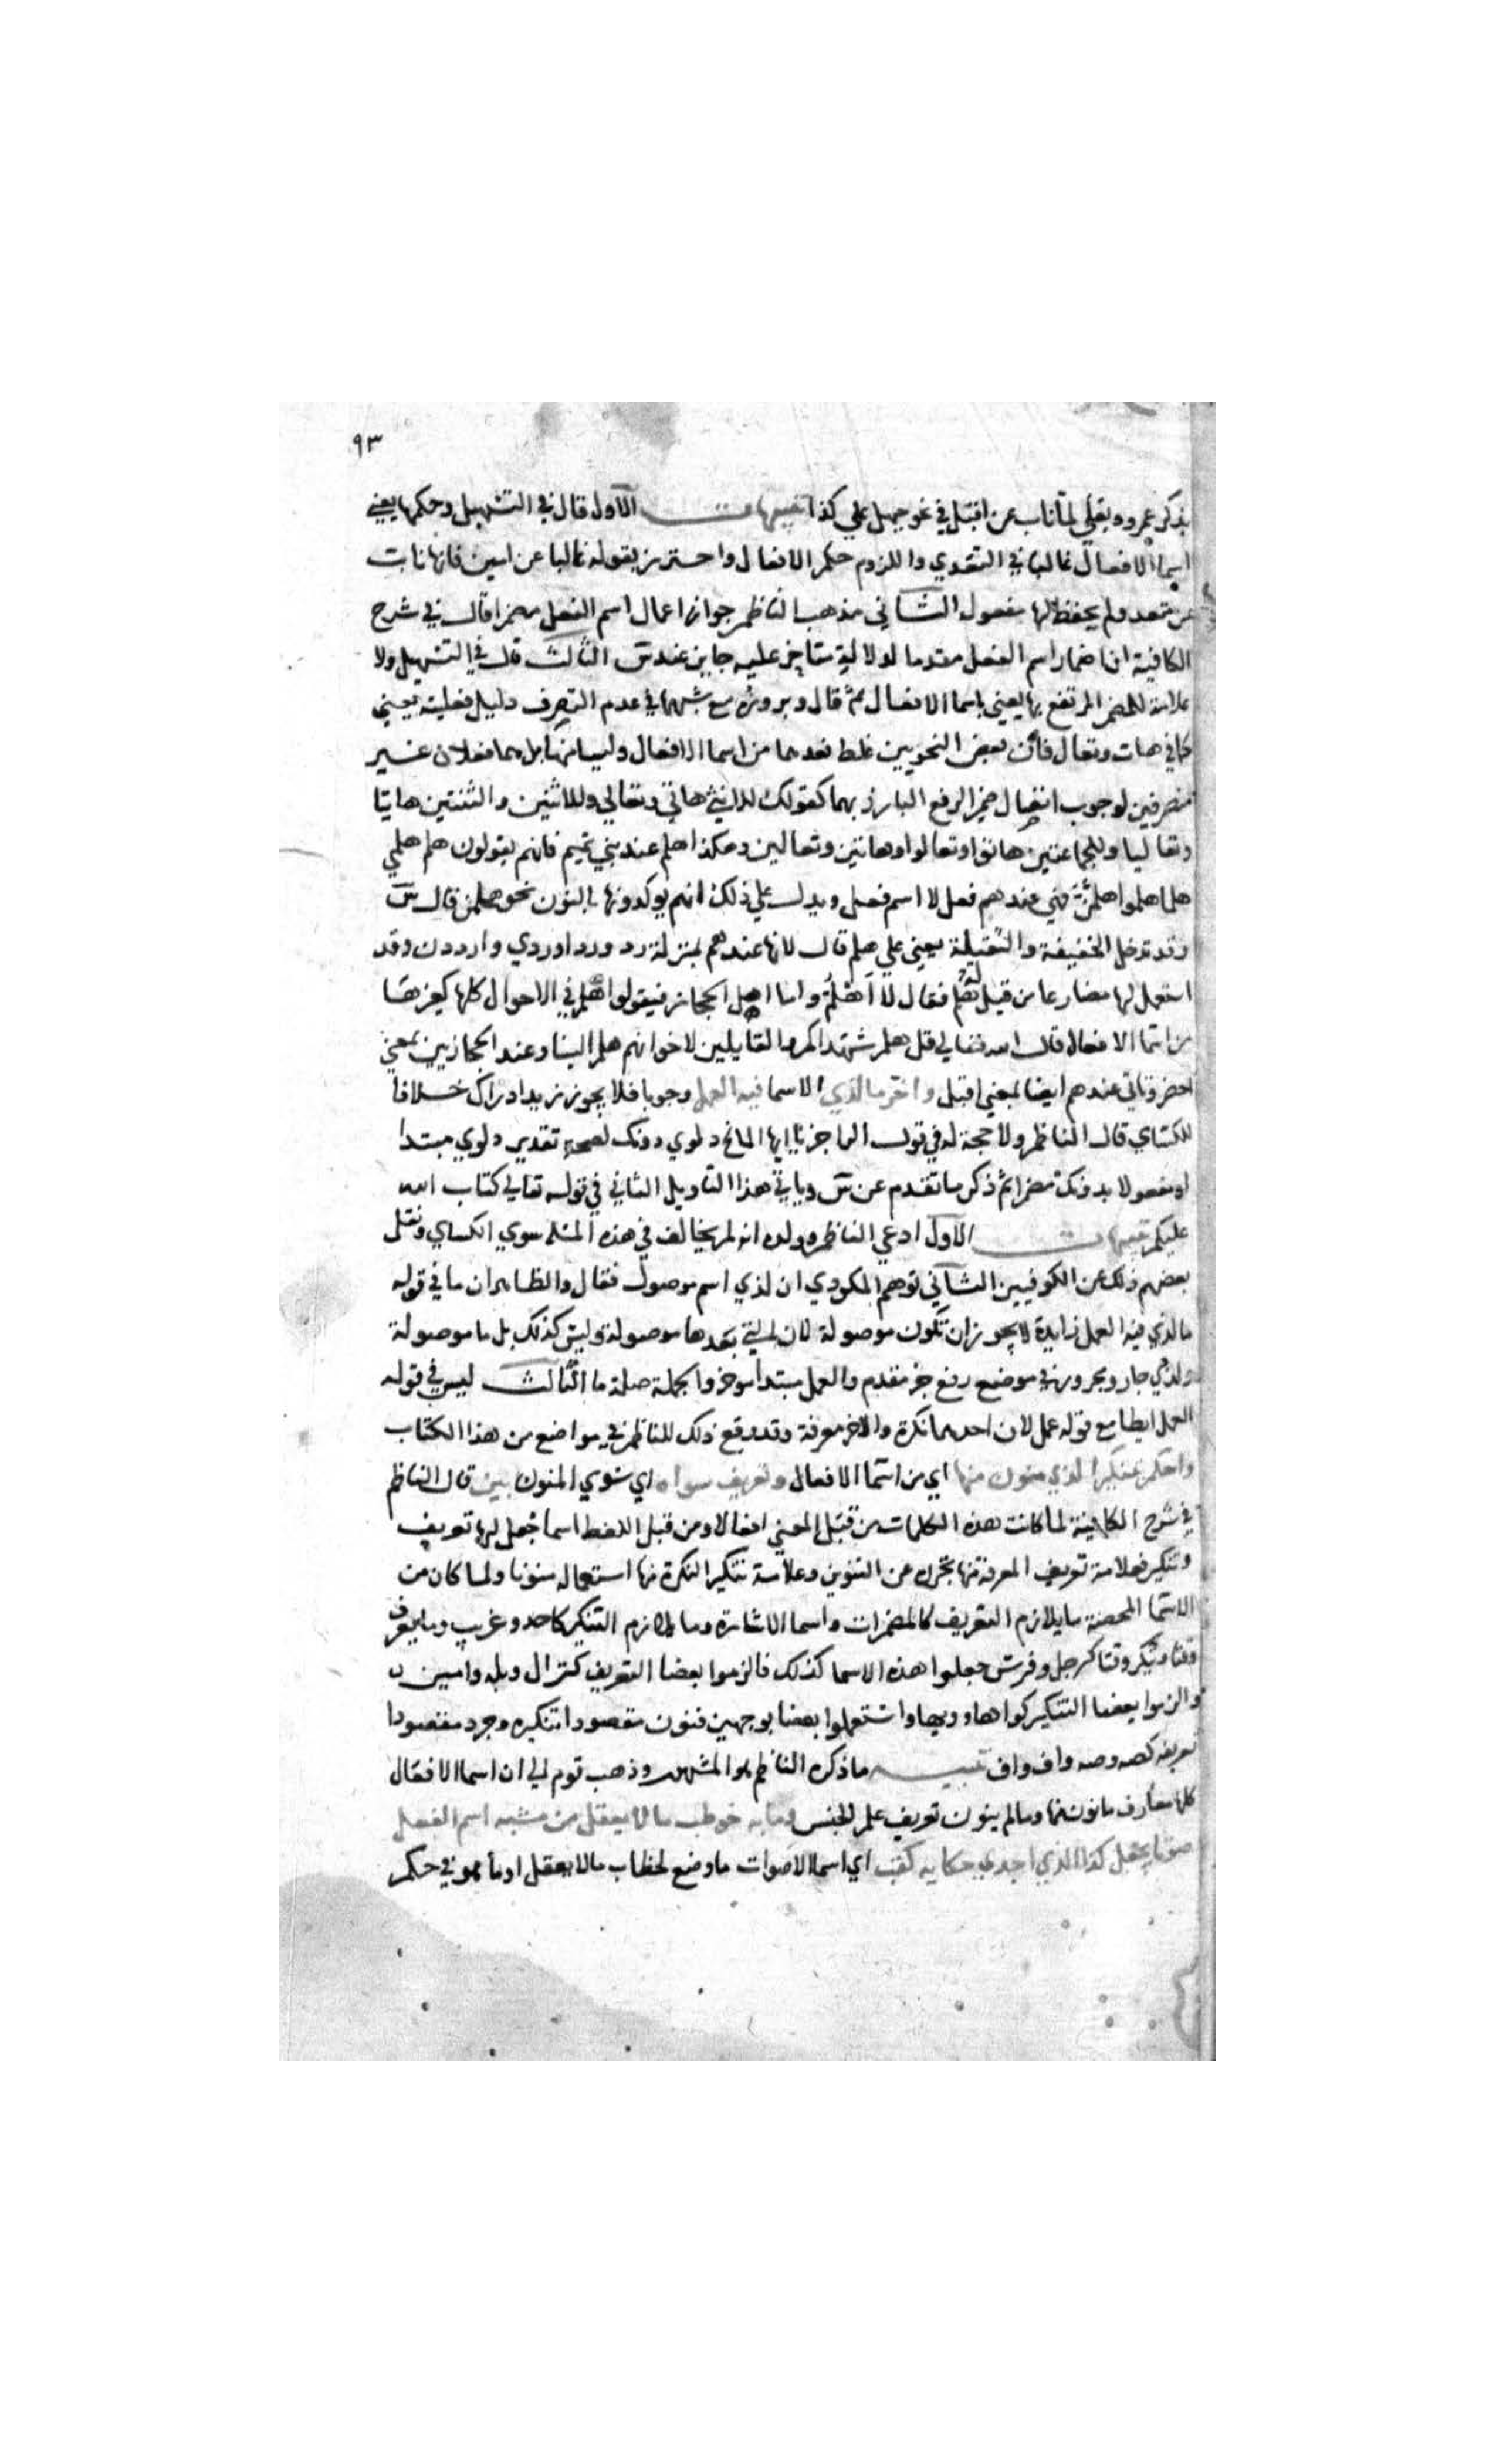 ٩٣
بذكر عمرو وبعلي لما ناب عن اقبل في نحو حيهل علي كذا تنبيهات الاول قال في التسهيل وحكمها يعني
اسما الافعال غالبا في التعدي واللزوم حكم الافعال واحترز بقوله غالبا عن امين فانها نابت
عن متعد ولم يحفظ لها مفعول الثاني مذهب الناظم جواز اعمال اسم الفعل مضمرا قال في شرح
الكافية ان اضمار اسم الفعل مقدما لدلالة متاخر عليه جايز عند س الثالث قال في التسهيل ولا
علامة للمضمر المرتفع بها يعني باسما الافعال ثم قال وبروزه مع شبهها في عدم التصرف دليل فعليته يعني
كما في هات وتعال فان بعض النحويين غلط فعدهما من اسما الافعال وليسا منها بل هما فعلان غير
متصرفين لوجوب اتصال ضمير الرفع البارز بهما كقولك للانثي هاتي وتعالي وللاثنين والثنتين هاتيا
وتعاليا وللجماعتين هاتوا وتعالوا وهاتين وتعالين وهكذا هلم عند بني تميم فانهم يقولون هلم هلمي
هلما هلموا هلممن فهي عندهم فعل لا اسم فعل ويدل علي ذلك انهم يوكدونها بالنون نحو هلمن قال س
وقد تدخل الخفيفة والثقيلة يعني علي هلم قال لانها عندهم بمنزلة رد وردا وردي وارددن وقد
استعمل لها مضارعا من قيل له هلم فقال لا اهلم واما اهل الحجاز فيقولوا هلم في الاحوال كلها كغيرها
من اسما الافعال قال الله تعالي قل هلم شهداكم والقايلين لاخوانهم هلم الينا وعند الحجازيين بمعني
احضر وتاتي عندهم ايضا بمعني اقبل واخر ما لذي الاسما فيه العمل وجوبا فلا يجوز زيدا دراك خلافا
للكساي قال الناظم ولا حجة له في قول الراجز يا ايها المائح دلوي دونك لصحة تقدير دلوي مبتدا
او مفعولا بدونك مضمرا ثم ذكر ما تقدم عن س وياتي هذا التاويل الثاني في قوله تعالي كتاب الله
عليكم تنبيهات الاول ادعي الناظم وولده انه لم يخالف في هذه المسلة سوي الكساي ونقل
بعضهم ذلك عن الكوفيين الثاني توهم المكودي ان لذي اسم موصول فقال والظاهر ان ما في قوله
ما لذي فيه العمل زايدة لا يجوز ان تكون موصولة لان لذي بعدها موصولة وليس كذلك بل ما موصولة
ولذي جار ومجرور في موضع رفع خبر مقدم والعمل مبتدا موخر والجملة صلة ما الثالث ليس في قوله
العمل ايطا مع قوله عمل لان احدهما نكرة والاخر معرفة وقد وقع ذلك للناظم في مواضع من هذا الكتاب
واحكم بتنكير الذي ينون منها اي من اسما الافعال وتعريف سواه اي سوي المنون بين قال الناظم
في شرح الكافية لما كانت هذه الكلمات من قبل المعني افعالا ومن قبل اللفظ اسما جعل لها تعريف
وتنكير فعلامة تعريف المعرفة منها تجرده عن التنوين وعلامة تنكير النكرة منها استعماله منونا ولما كان من
الاسما المحضة ما يلازم التعريف كالمضمرات واسما الاشارة وما يلازم التنكير كاحد وغريب وما يعرف
وقتا وينكر وقتا كرجل وفرس جعلوا هذه الاسما كذلك فالزموا بعضا التعريف كنزال وبله وامين
والزموا بعضا التنكير كواها وويها واستعملوا بعضا بوجهين فنون مقصودا تنكيره وجرد مقصودا
تعريفه كصه وصه واف واف تنبيه ما ذكره الناظم هو المشهور وذهب قوم الي ان اسما الافعال
كلها معارف ما نون منها وما لم ينون تعريف علم الجنس وما به خوطب ما لا يعقل من مشبه اسم الفعل
صوتا يجعل كذا الذي اجدي حكاية كقب اي اسما الاصوات ما وضع لخطاب ما لا يعقل او ما هو في حكم